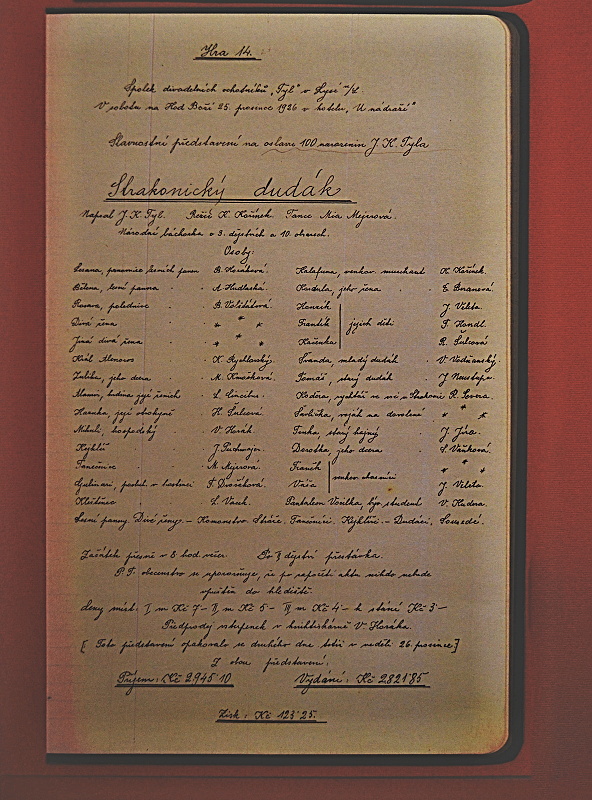 Hra 14.
Spolek divadelních ochotníků „Tyl" v Lysé n/L
V sobotu na Hod Boží 25. prosince 1926 v hotelu „U nádraží"
Slavnostní představení na oslavu 100 narozenin J. K. Tyla
Strakonický dudák
Napsal J. K. Tyl. Režie K. Kořínek. Tance Mia Mejrová.
Národní báchorka o 3. dějstvích a 10. obrazech.
Osoby:
Lesana, panovnice lesních panen B. Horáková. Kalafuna, venkov. muzikant K. Kořínek.
Běłena, lesní panna A. Hudlaská. Kordula, jeho žena E.
Rosava, polednice B. Honzík J. Veleta.
Divá žena * * * Frantík jejich děti F. Hondl.
Jiná divá žena * * * Kačenka R. Šulcová
Král Alenoros K. Rychlovský. Švanda, mladý dudák V. Vodňanský
Zulika, jeho dcera M. Tomáš, starý dudák J.
jejich ženich L. Koděra, ze vsi u Strakonic R.
Hanuka, její obstojně H. Šulcová. voják na dovolené * * *
Mikuli, hospodský V. Horák. starý hajný J. Jíra.
J. Dorotka, jeho dcera S. Vaňková.
Tanečnice M. Mejrová. Franěk venkov. chasníci * * *
v hostinci F. Dvořáková. J. Veleta.
L. Vaněk. Pantaleon Vocilka, býv. student V. Kudrna.
Lesní panny. Divé ženy. – Komonstvo. Stráže. Tanečnice. – Dudáci. Sousedé.
Začátek přesně v 8. hod. večer. Po dějství přestávka.
P. T. obecenstvo se upozorňuje, že po započetí aktu nikdo nebude
vpuštěn do hlediště.
Ceny míst: I m Kč 7– II m Kč 5– III m Kč 4– k stání Kč 3–
Předprodej vstupenek v knihtiskárně V. Horáka.
[Toto představení opakovalo se druhého dne totiž v neděli 26. prosince]
Z obou představení:
Příjem: Kč 2.945˙10 Vydání: Kč 2.821˙85
Zisk: Kč 123˙25.